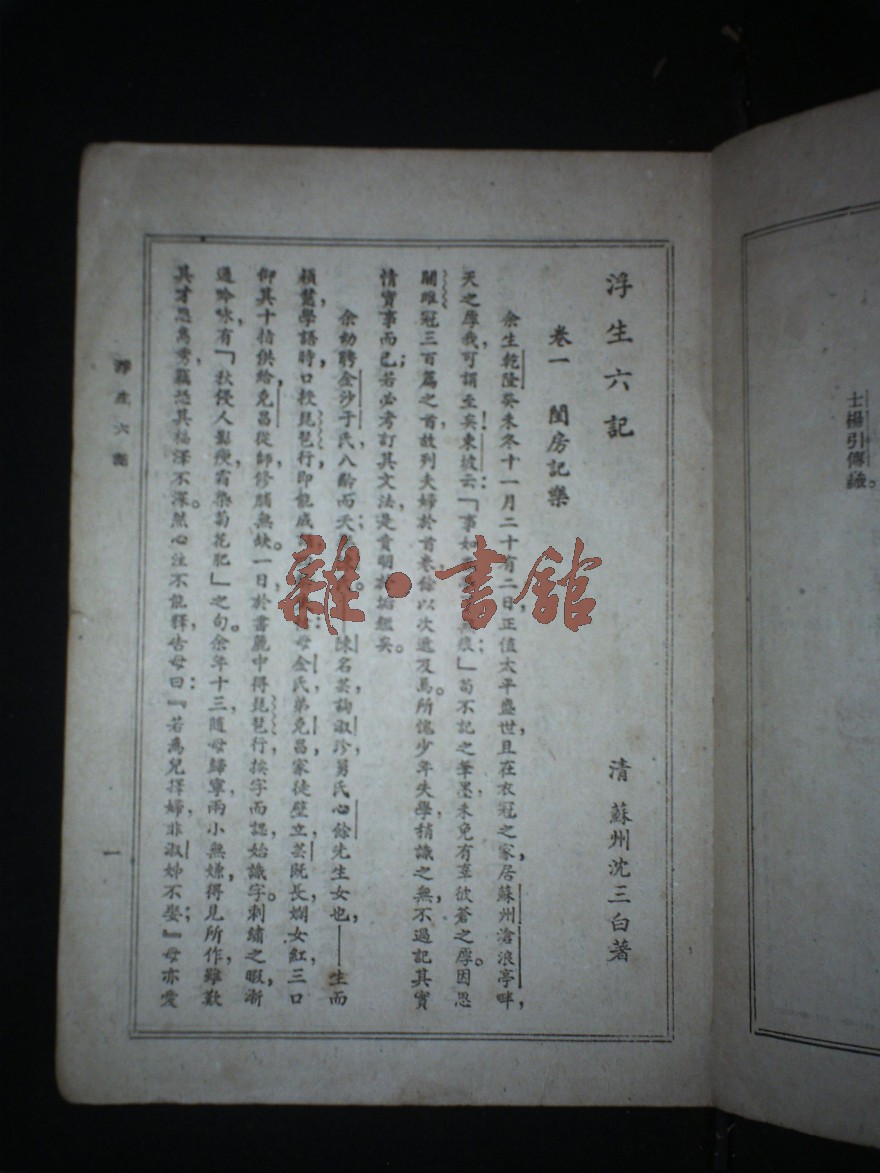 士楊引傳識。
浮生六記
清 蘇州沈三白著
卷一 閨房記樂
余生乾隆癸未冬十一月二十有二日，正值太平盛世，且在衣冠之家，居蘇州滄浪亭畔，
天之厚我，可謂至矣！東坡云：「事如 痕」；苟不記之筆墨，未免有辜彼蒼之厚。因思
關雎冠三百篇之首，故列夫婦於首卷，餘以次遞及焉。所愧少年失學，稍識之無，不過記其實
情實事而已；若必考訂其文法，是責明於垢鑑矣。
余幼聘金沙于氏，八齡而夭； 陳名芸，詢淑珍，舅氏心餘先生女也，——生而
穎慧，學語時，口授琵琶行，即能成 母金氏，弟克昌，家徒壁立。芸既長，嫻女紅，三口
仰其十指供給，克昌從師，修脯無缺。一日，於書簏中得琵琶行，挨字而認，始識字。刺繡之暇，漸
通吟咏，有「秋侵人影瘦，霜染菊花肥」之句。余年十三，隨母歸寧，兩小無嫌，得見所作，雖歎
其才思雋秀，竊恐其福澤不深。然心注不能釋，告母曰：『若為兒擇婦，非淑姊不娶；』母亦愛
浮生六記
一
雜·書館